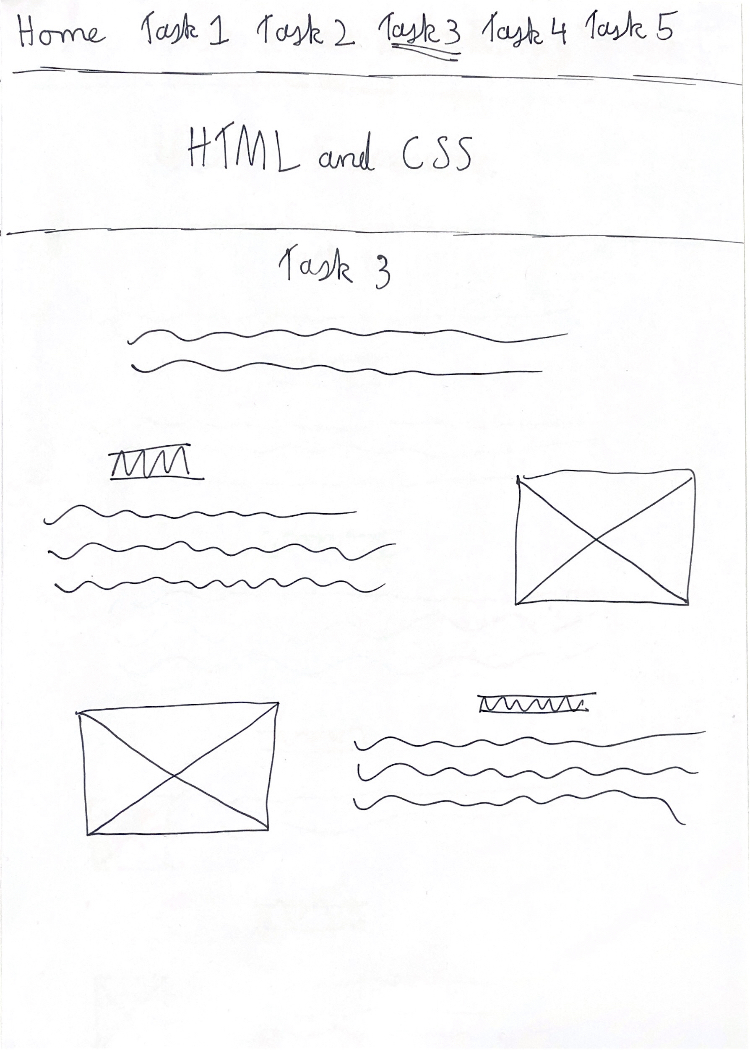 Home Task 1 Task 2 Task 3 Task 4 Task 5
HTML and CSS
Task 3